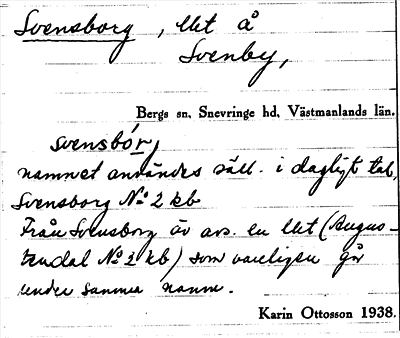 Svensborg, lht å
Svenby,
Bergs sn, Snevringe hd, Västmanlands län.
svensbór̨j
namnet användes säll. i dagligt tal,
Svensborg No 2 kb
Från Svensborg är avs. en lht (Augus-
tendal No 2 kb) som vanligen går
under samma namn.
Karin Ottosson 1938.